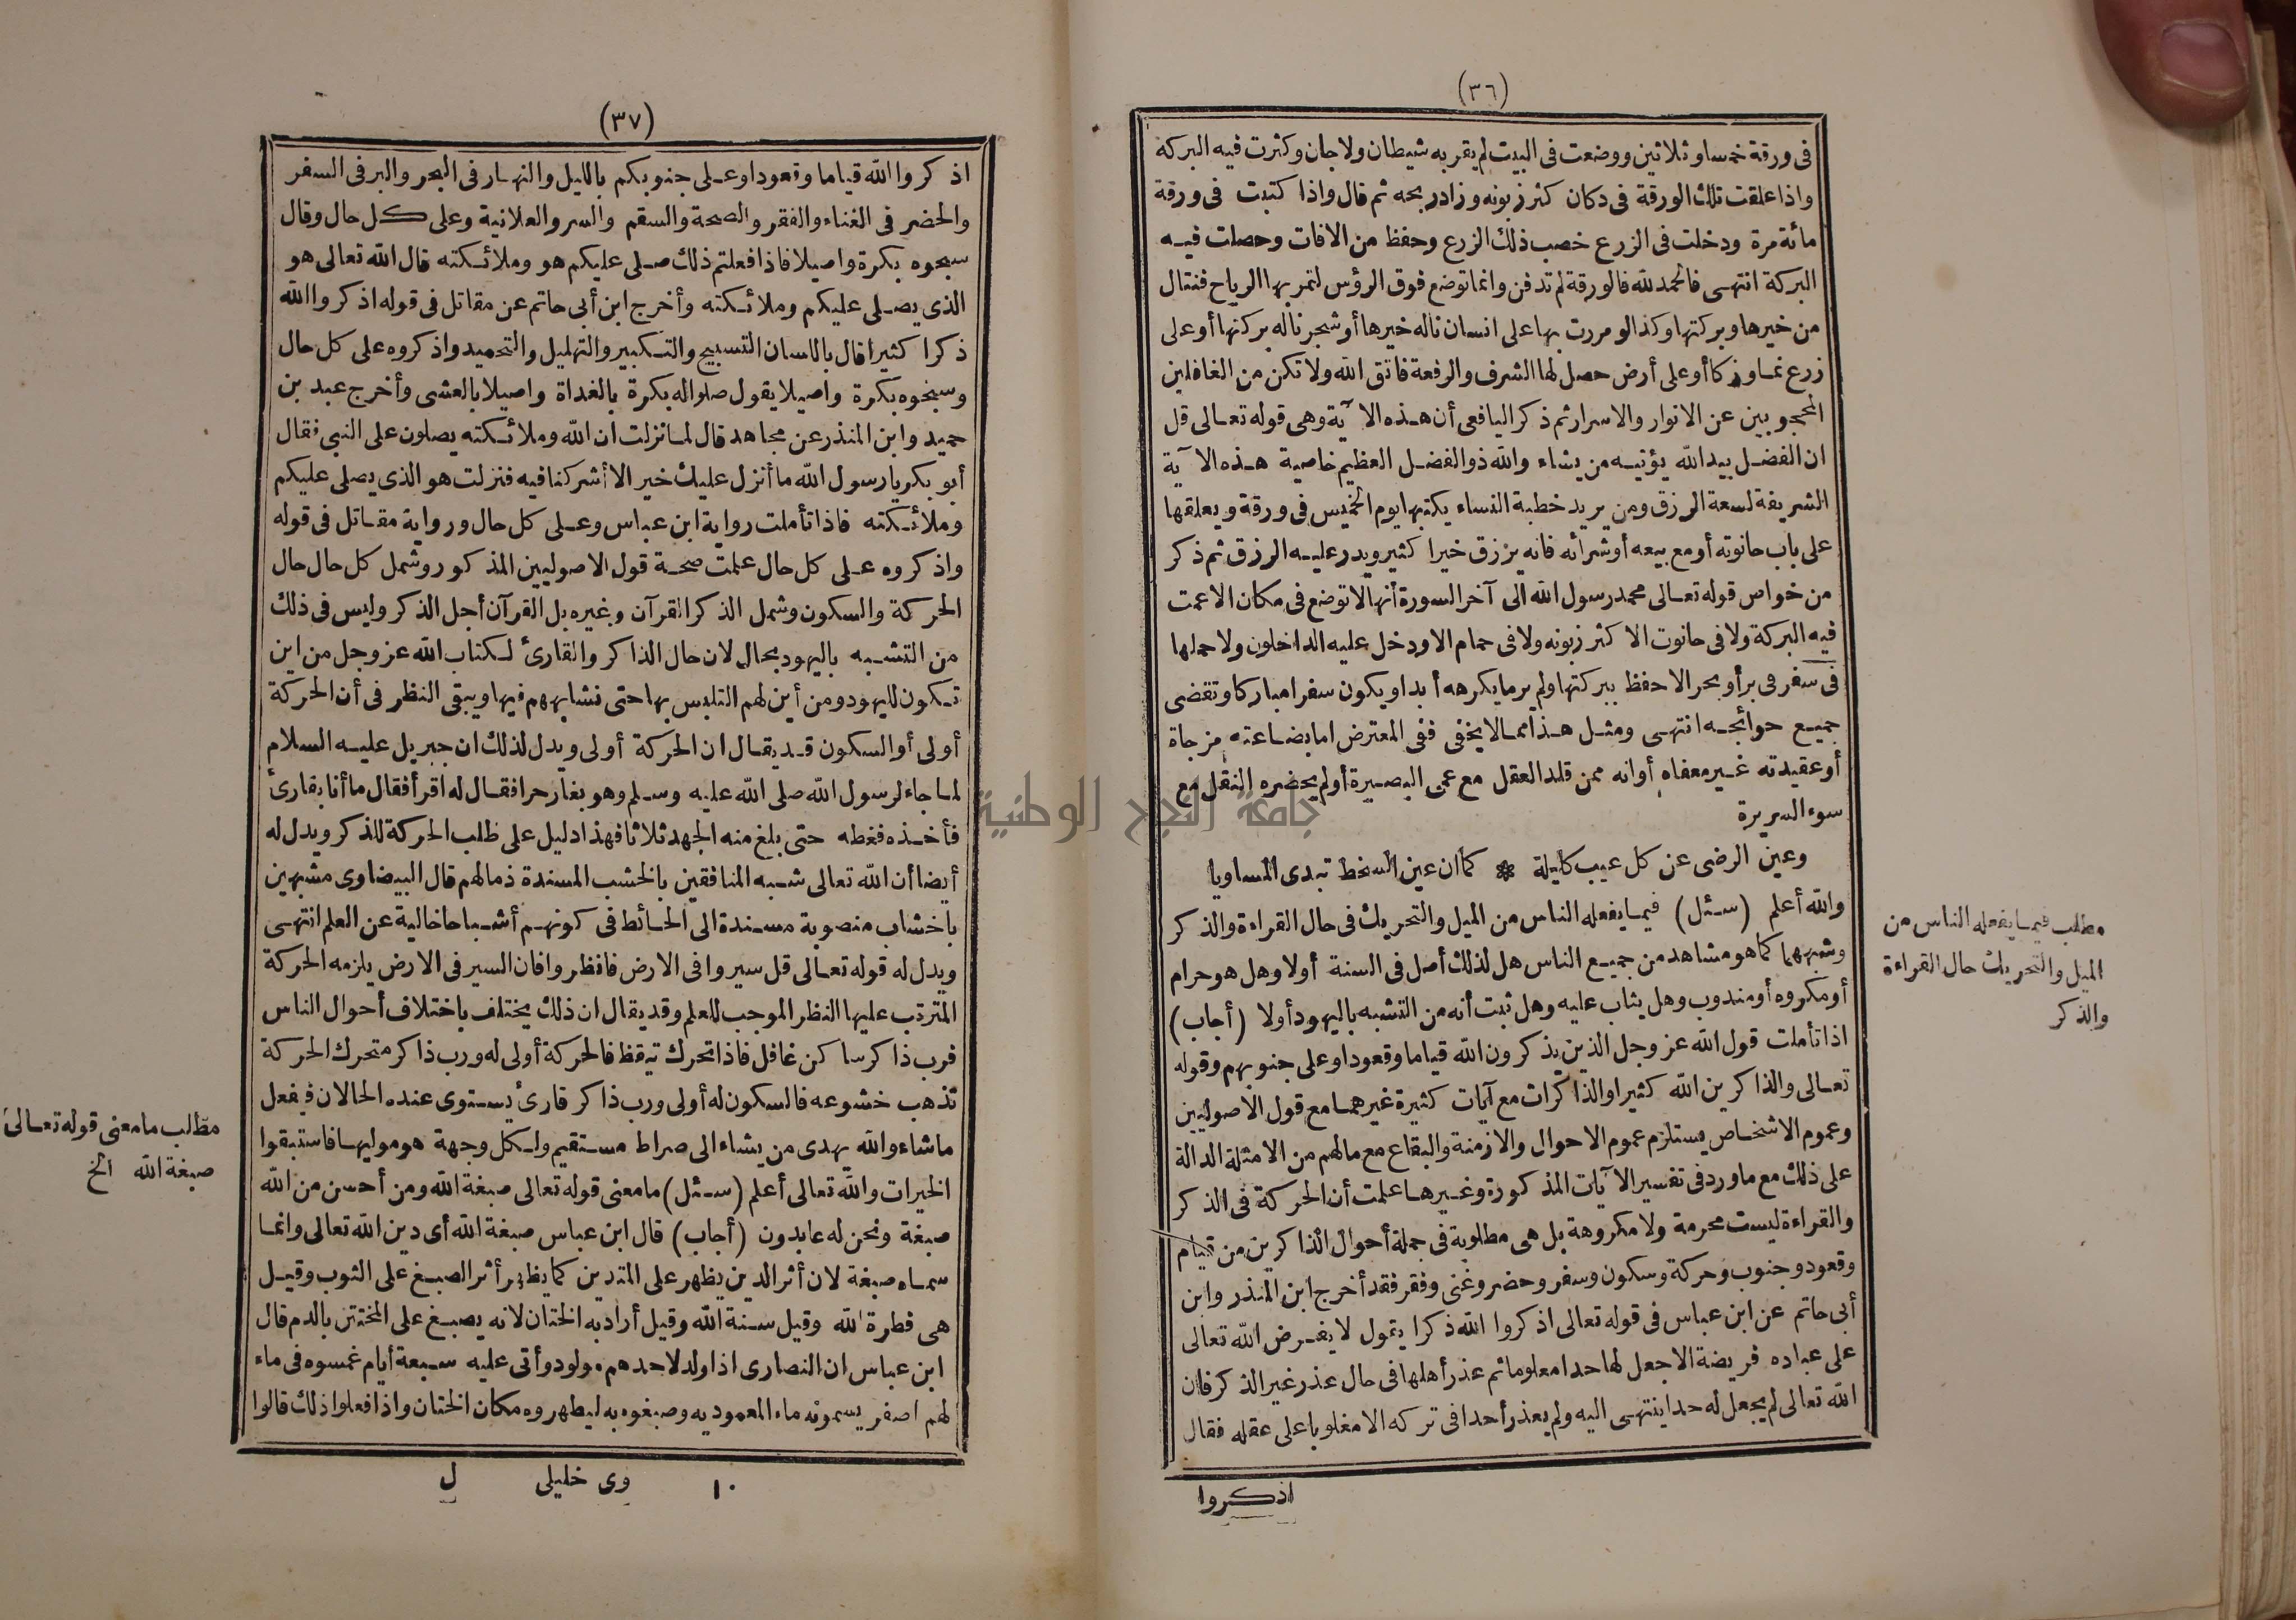 (٣٦)
فى ورقة خمسا وثلاثين ووضعت فى البيت لم يقربه شيطان ولا جان وكثرت فيه البركة
واذا علقت تلك الورقة فى دكان كثر زبونه وزاد ربحه ثم قال واذا كتبت فى ورقة
مائة مرة ودخلت فى الزرع خصب ذلك الزرع وحفظ من الافات وحصلت فيه
البركة انتهى فالحمد لله فالورقة لم تدفن وانما توضع فوق الرؤس لتمر بها الرياح فتنال
من خيرها وبركتها وكذا لو مررت بها على انسان ناله خيرها أو شجر ناله بركتها أو على
زرع نما وزكا أو على أرض حصل لها الشرف والرفعة فاتق الله ولا تكن من الغافلين
المحجوبين عن الانوار والاسرار ثم ذكر اليافعى أن هذه الآية وهى قوله تعالى قل
ان الفضل بيد الله يؤتيه من يشاء والله ذو الفضل العظيم خاصية هذه الآية
الشريفة لسعة الرزق ومن يريد خطبة النساء يكتبها يوم الخميس فى ورقة ويعلقها
على باب حانوته أو مع بيعه أو شرائه فانه يرزق خيرا كثيرا ويدر عليه الرزق ثم ذكر
من خواص قوله تعالى محمد رسول الله الى آخر السورة أنها لا توضع فى مكان الا عمت
فيه البركة ولا فى حانوت الا كثر زبونه ولا فى حمام الا ودخل عليه الداخلون ولا حملها
فى سفر فى بر أو بحر الا حفظ ببركتها ولم ير ما يكرهه أبدا ويكون سفرا مباركا وتقضى
جميع حوائجه انتهى ومثل هذا مما لا يخفى ففى المعترض اما بضاعته مزجاة
أو عقيدته غير معفاه أو انه ممن قلد العقل مع عمى البصيرة أو لم يحضره النقل مع
سوء السريرة
وعين الرضى عن كل عيب كليلة * كما ان عين السخط تبدى المساويا
والله أعلم (سئل) فيما يفعله الناس من الميل والتحريك فى حال القراءة والذكر
وشبههما كما هو مشاهد من جميع الناس هل لذلك أصل فى السنة أولا وهل هو حرام
أو مكروه أو مندوب وهل يثاب عليه وهل ثبت أنه من التشبه باليهود أولا (أجاب)
اذا تأملت قول الله عز وجل الذين يذكرون الله قياما وقعودا وعلى جنوبهم وقوله
تعالى والذاكرين الله كثيرا والذاكرات مع آيات كثيرة غيرهما مع قول الاصوليين
وعموم الاشخاص يستلزم عموم الاحوال والازمنة والبقاع مع مالهم من الامثلة الدالة
على ذلك مع ما ورد فى تفسير الآيات المذكورة وغيرها علمت أن الحركة فى الذكر
والقراءة ليست محرمة ولا مكروهة بل هى مطلوبة فى جملة أحوال الذاكرين من قيام
وقعود وجنوب وحركة وسكون وسفر وحضر وغنى وفقر فقد أخرج ابن المنذر وابن
أبى حاتم عن ابن عباس فى قوله تعالى اذكروا الله ذكرا يقول لا يفرض الله تعالى
على عباده فريضة الا جعل لها حدا معلوما ثم عذر أهلها فى حال عذر غير الذكر فان
الله تعالى لم يجعل له حدا ينتهى اليه ولم يعذر أحدا فى تركه الا مغلوبا على عقله فقال
اذكروا
مطلب فيما يفعله الناس من
الميل والتحريك حال القراءة
والذكر
(٣٧)
اذكروا الله قياما وقعودا وعلى جنوبكم بالليل والنهار فى البحر والبر فى السفر
والحضر فى الغناء والفقر والصحة والسقم والسر والعلانية وعلى كل حال وقال
سبحوه بكرة واصيلا فاذا فعلتم ذلك صلى عليكم هو وملائكته قال الله تعالى هو
الذى يصلى عليكم وملائكته وأخرج ابن أبى حاتم عن مقاتل فى قوله اذكروا الله
ذكرا كثيرا قال باللسان التسبيح والتكبير والتهليل والتحميد واذكروه على كل حال
وسبحوه بكرة واصيلا يقول صلوا له بكرة بالغداة واصيلا بالعشى وأخرج عبد بن
حميد وابن المنذر عن مجاهد قال لما نزلت ان الله وملائكته يصلون على النبى فقال
أبو بكر يا رسول الله ما أنزل عليك خير الا أشركنا فيه فنزلت هو الذى يصلى عليكم
وملائكته فاذا تأملت رواية ابن عباس وعلى كل حال ورواية مقاتل فى قوله
واذكروه على كل حال علمت صحة قول الاصوليين المذكور وشمل كل حال حال
الحركة والسكون وشمل الذكر القرآن وغيره بل القرآن أجل الذكر وليس فى ذلك
من التشبه باليهود بحال لان حال الذاكر والقارئ لكتاب الله عز وجل من اين
تكون لليهود ومن أين لهم التلبس بها حتى نشابههم فيها ويبقى النظر فى أن الحركة
أولى أو السكون قد يقال ان الحركة أولى ويدل لذلك ان جبريل عليه السلام
لما جاء لرسول الله صلى الله عليه وسلم وهو بغار حرا فقال له اقرأ فقال ما أنا بقارئ
فأخذه فغطه حتى بلغ منه الجهد ثلاثا فهذا دليل على طلب الحركة للذكر ويدل له
أيضا أن الله تعالى شبه المنافقين بالخشب المسندة ذما لهم قال البيضاوى مشبهين
باخشاب منصوبة مسندة الى الحائط فى كونهم أشباحا خالية عن العلم انتهى
ويدل له قوله تعالى قل سيروا فى الارض فانظروا فان السير فى الارض يلزمه الحركة
المترتب عليها النظر الموجب للعلم وقد يقال ان ذلك يختلف باختلاف أحوال الناس
فرب ذاكر ساكن غافل فاذا تحرك تيقظ فالحركة أولى له ورب ذاكر متحرك الحركة
تذهب خشوعه فالسكون له أولى ورب ذاكر قارئ يستوى عنده الحالان فيفعل
ما شاء والله يهدى من يشاء الى صراط مستقيم ولكل وجهة هو موليها فاستبقوا
الخيرات والله تعالى أعلم (سئل) ما معنى قوله تعالى صبغة الله ومن أحسن من الله
صبغة ونحن له عابدون (أجاب) قال ابن عباس صبغة الله أى دين الله تعالى وانما
سماه صبغة لان أثر الدين يظهر على المتدين كما يظهر أثر الصبغ على الثوب وقيل
هى فطرة الله وقيل سنة الله وقيل أراد به الختان لانه يصبغ على المختتن بالدم قال
ابن عباس ان النصارى اذا ولد لاحدهم مولود وأتى عليه سبعة أيام غمسوه فى ماء
لهم اصفر يسمونه ماء المعموديه وصبغوه به ليطهروه مكان الختان واذا فعلوا ذلك قالوا
١٠ وى خليلى ل
مطلب ما معنى قوله تعالى
صبغة الله الخ
جامعة النجاح الوطنية